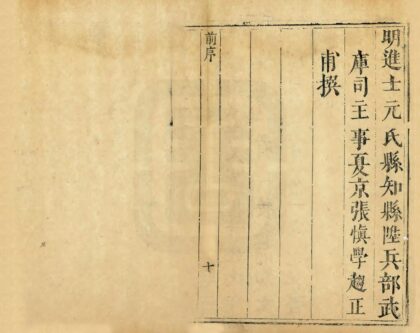 明進士元氏縣知縣陞兵部武
庫司主事夏京張慎學趨正
甫撰
前序
十